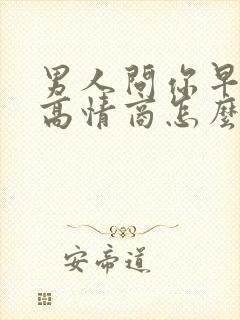 男人问你早
高情商怎麼
安帝道